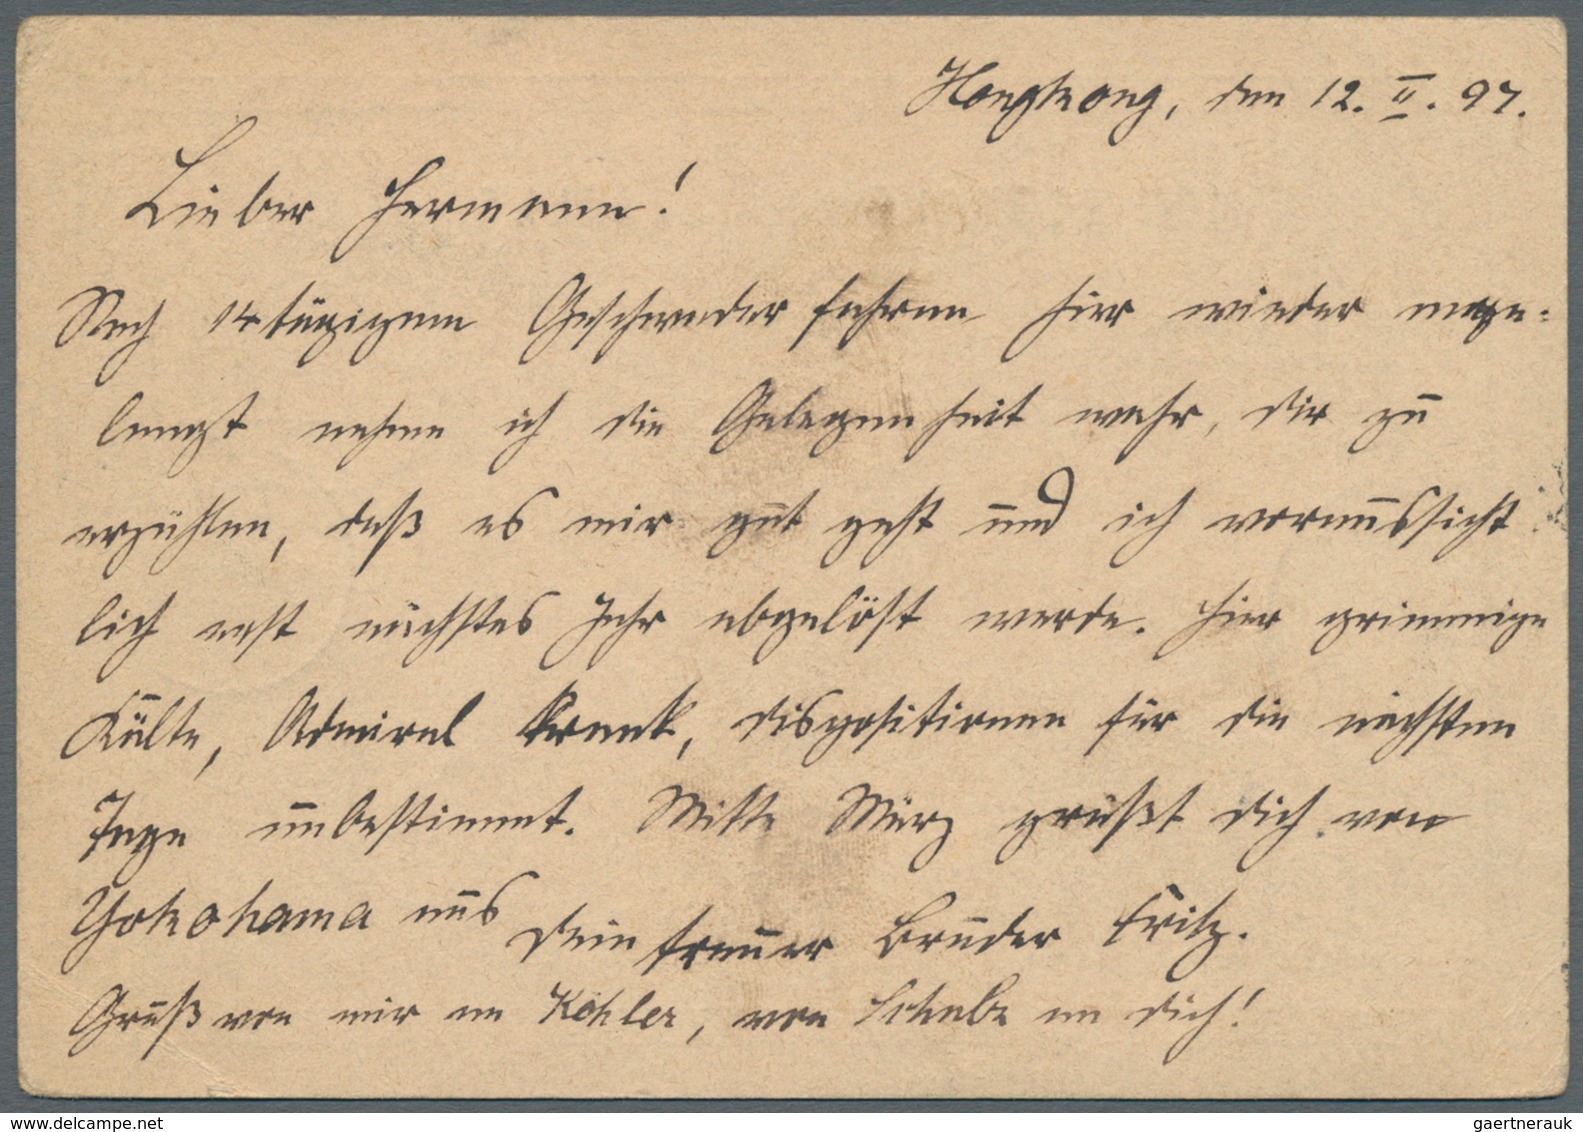 Hongkong, den 12. II. 97.
Lieber Hermann!
Nach 14 tägigem Geschwaderfahren hier wieder ange-
langt nehme ich die Gelegenheit wahr, dir zu
erzählen, daß es mir gut geht und ich voraussicht
lich erst nächstes Jahr abgelöst werde. Hier grimmige
Kälte, Admiral krank, Dispositionen für die nächsten
Tage unbestimmt. Mitte März grüßt dich von
Yokohama aus
dein treuer Bruder Fritz.
Gruß von mir an Köhler, von Schabe an dich!
gaertnerauk